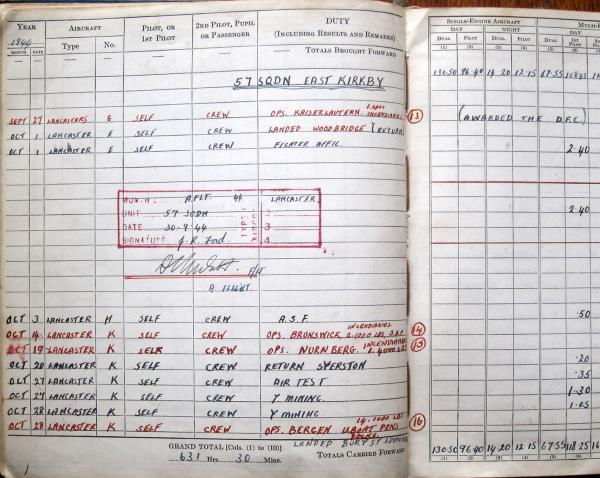 YEAR AIRCRAFT PILOT, OR 1ST PILOT 2ND PILOT, PUPIL OR PASSENGER DUTY (INCLUDING RESULTS AND REMARKS)
1944 Type No.
MONTH DATE — — — TOTALS BROUGHT FORWARD
SINGLE-ENGINE AIRCRAFT MULTI-
DAY NIGHT DAY
DUAL PILOT DUAL PILOT DUAL 1ST PILOT
(1) (2) (3) (4) (5) (6)
130·50 96·40 14·20 12·15 67·55 108·45
57 SQDN EAST KIRKBY
SEPT 27 LANCASTERS G SELF CREW OPS. KAISERLAUTERN. INCENDIARIES 13 (AWARDED THE D.F.C.)
OCT 1 LANCASTER E SELF CREW LANDED WOODBRIDGE (RETURN)
OCT 1 LANCASTER E SELF CREW FIGHTER AFFIL. 2·40
MONTH A.FLT. 44 LANCASTER
UNIT 57 SQDN 2
DATE 30·9·44 3
SIGNATURE J. R. Ford. 4
TYPES
2·40
F/LT
A FLIGHT
OCT 3 LANCASTER H SELF CREW A.S.F. ·50
OCT 14 LANCASTER K SELF CREW OPS. BRUNSWICK INCENDIARIES 2·1000 LBS. 14
OCT 19 LANCASTER K SELF CREW OPS. NURNBERG. INCENDIARIES 1·4000 LBS 15
OCT 20 LANCASTER K SELF CREW RETURN SYERSTON ·20
OCT 27 LANCASTER K SELF CREW AIR TEST ·35
OCT 27 LANCASTER K SELF CREW Y MINING. 1·30
OCT 28 LANCASTER K SELF CREW Y MINING 1·05
OCT 28 LANCASTER K SELF CREW OPS. BERGEN UBOAT PENS 14·1000 LBS 16
LANDED BURY ST
GRAND TOTAL [Cols. (1) to (10)]
631 Hrs. 30 Mins.
TOTALS CARRIED FORWARD
130·50 96·40 14·20 12·15 67·55 118·25
(1) (2) (3) (4) (5) (6)